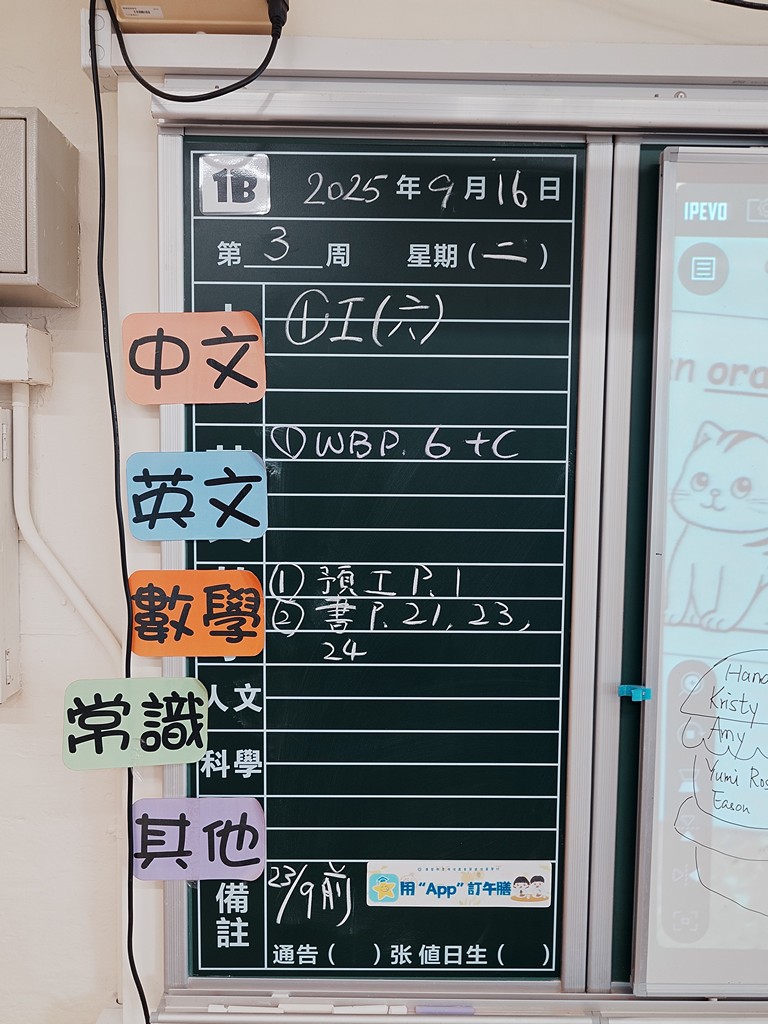 1B 2025年9月16日
第3周 星期(二)
中文 ①工(六)
英文 ①WBP. 6 + C
數學 ① 預工P. 1
② 書P. 21, 23,
24
人文
常識
科學
其他
備註 23/9前 用“App”訂午膳
通告( )张 值日生( )
IPEVO
an ora
Hand
Kristy
Amy
Yumi Ros
Eason